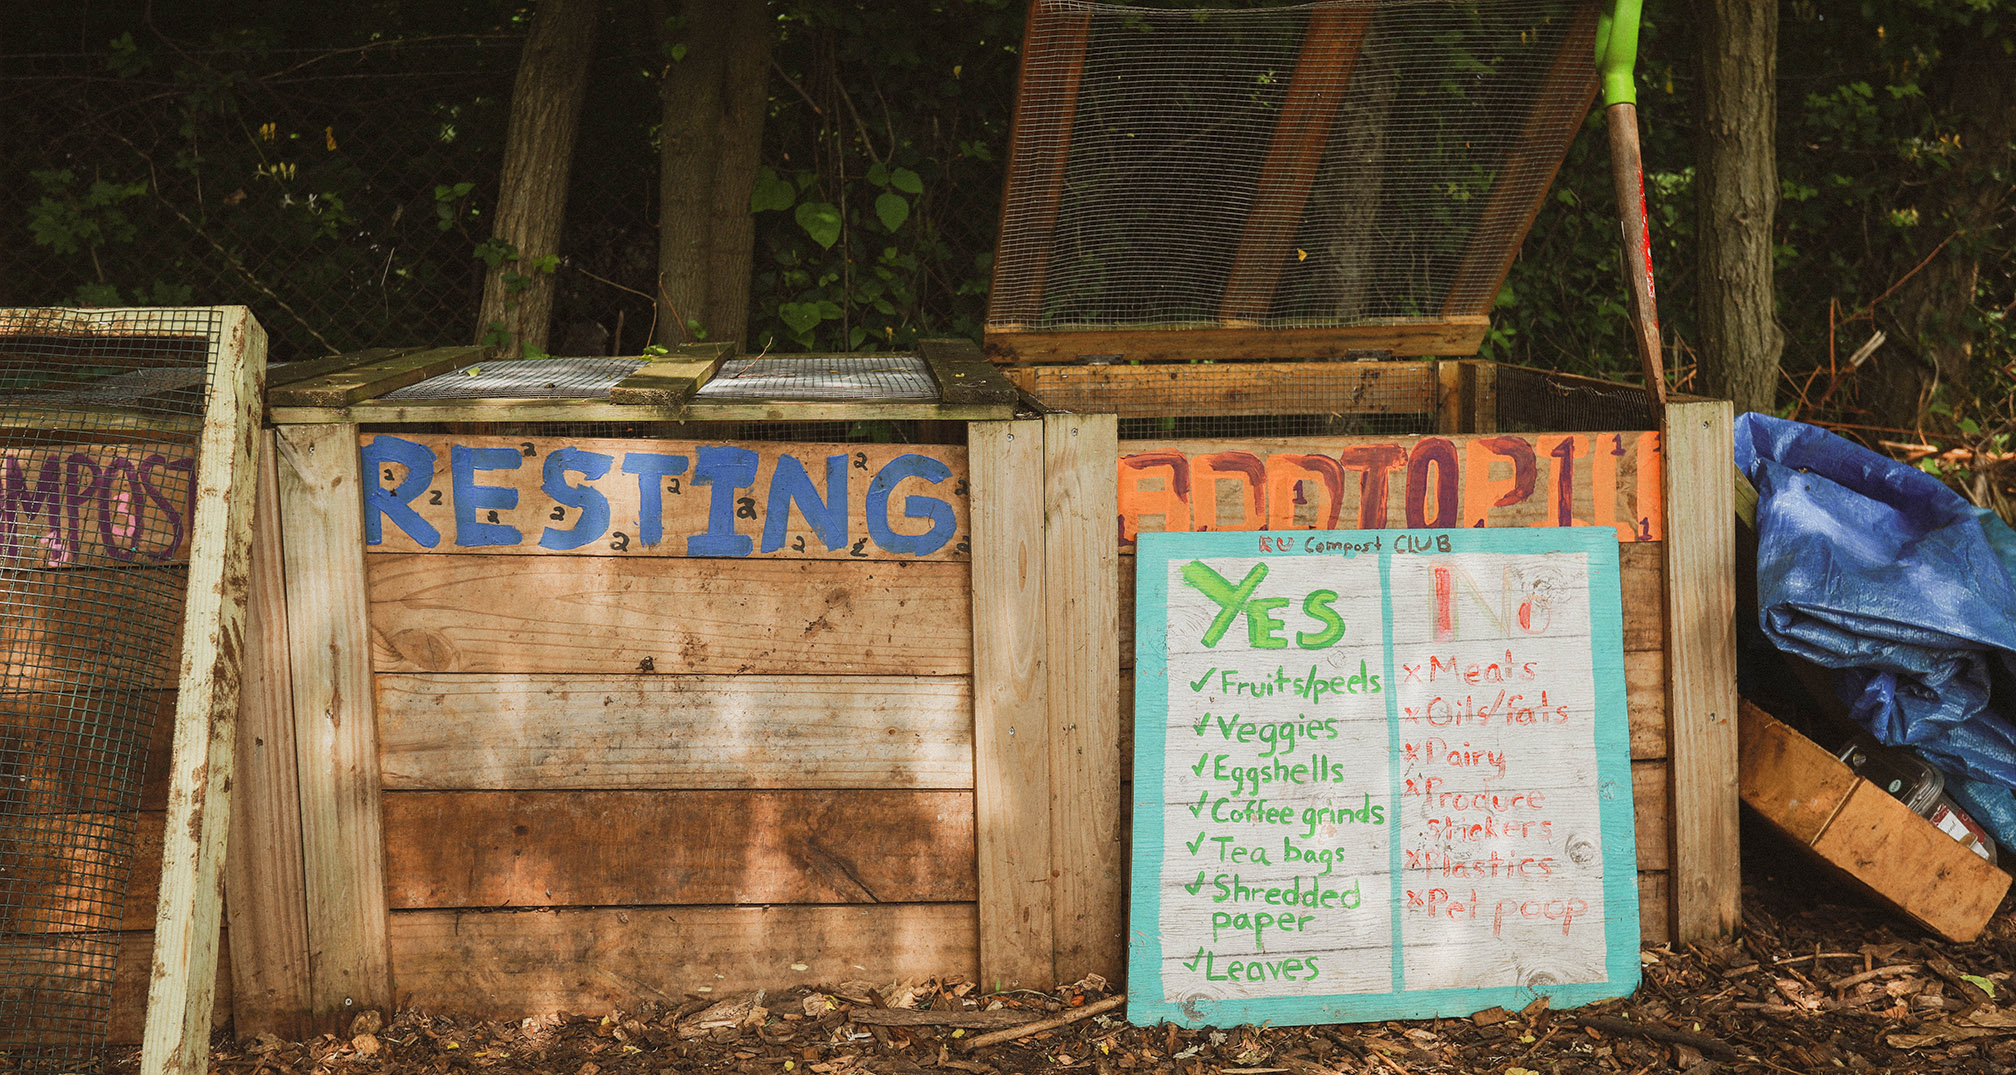 RESTING
ADD TO PILE
RU Compost CLUB
YES
✓ Fruits/peels
✓ Veggies
✓ Eggshells
✓ Coffee grinds
✓ Tea bags
✓ Shredded
paper
✓ Leaves
NO
x Meats
x Oils/fats
x Dairy
x Produce
stickers
x Plastics
x Pet poop